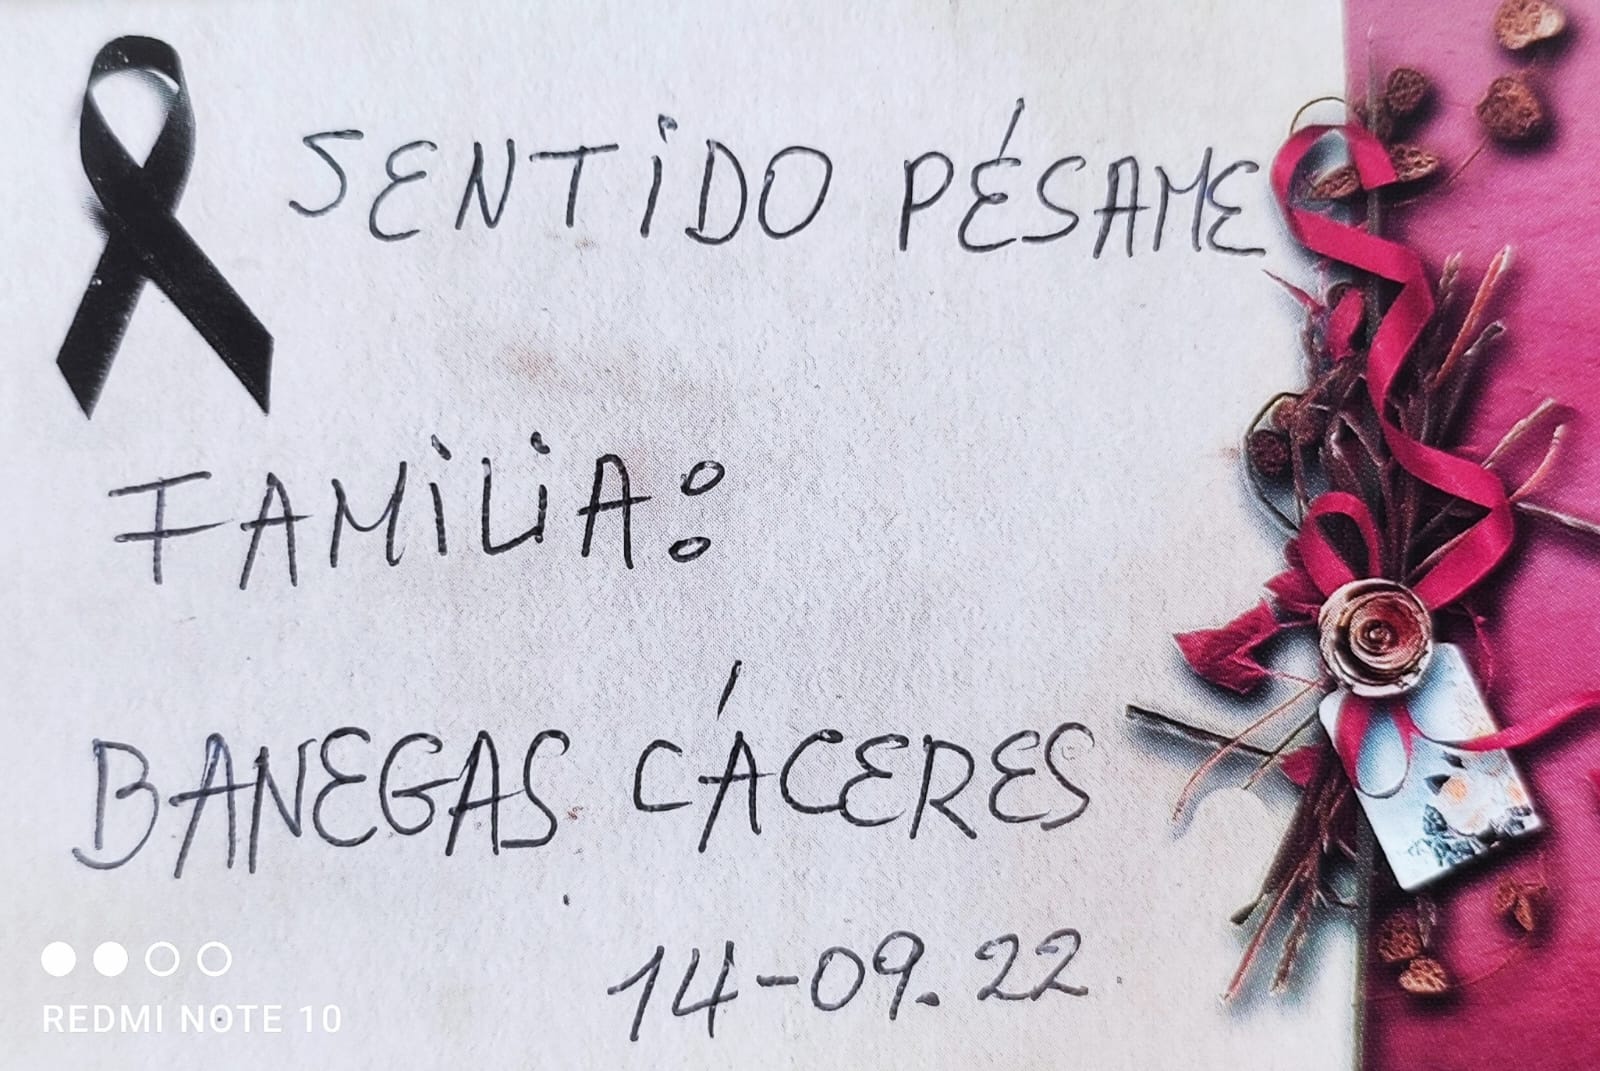 SENTIDO PÉSAME
FAMILIA:
BANEGAS CÁCERES
14-09.22
REDMI NOTE 10